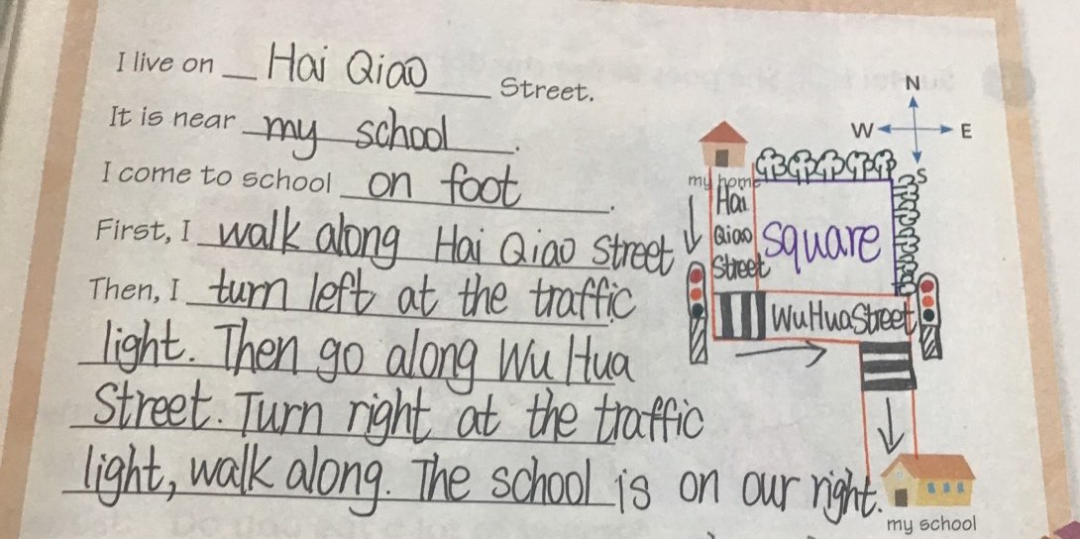 I live on Hai Qiao Street.
It is near my school.
I come to school on foot.
First, I walk along Hai Qiao Street
Then, I turn left at the traffic
light. Then go along Wu Hua
Street. Turn right at the traffic
light, walk along. The school is on our right.
N
W E
S
my home
Hai
Qiao
Street
square
WuHuaStreet
my school